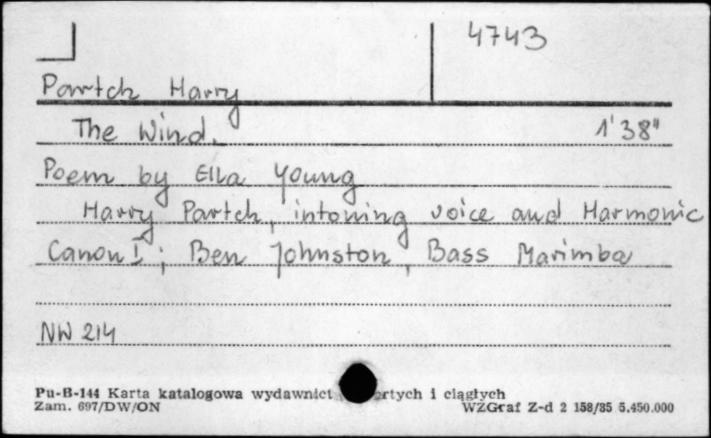 4743
Partch Harry
The Wind. 1'38"
Poem by Ella Young
Harry Partch, intoning voice and Harmonic
Canon I; Ben Johnston, Bass Marimba
NW 214
Pu-B-144 Karta katalogowa wydawnict rtych i ciągłych
Zam. 697/DW/ON WZGraf Z-d 2 158/85 5.450.000